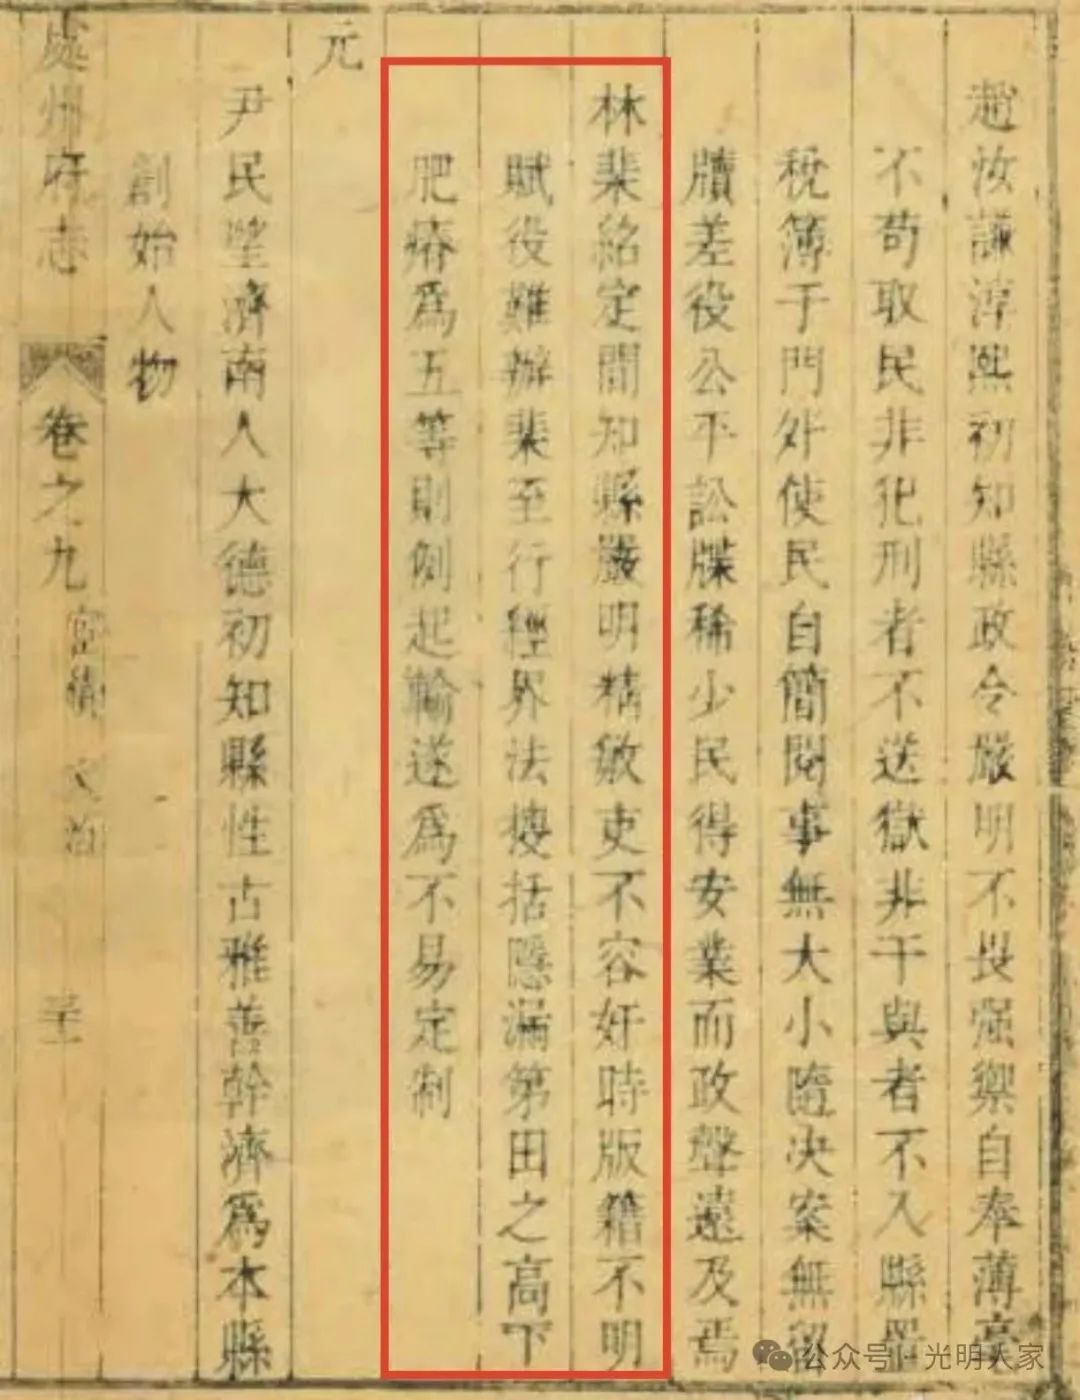 趙汝謙淳熙初知縣政令嚴明不畏强禦自奉薄毫
不苟取民非犯刑者不送獄非干與者不入縣署
稅簿于門外使民自簡閱事無大小隨决案無留
牘差役公平訟牒稀少民得安業而政聲遠及焉
林棐紹定間知縣嚴明精敏吏不容奸時版籍不明
賦役難辦棐至行經界法摟括隱漏第田之高下
肥瘠爲五等則例起輸遂爲不易定制
元
尹民望濟南人大德初知縣性古雅善幹濟爲本縣
創始人物
處州府志 卷之九
公众号·光明人家